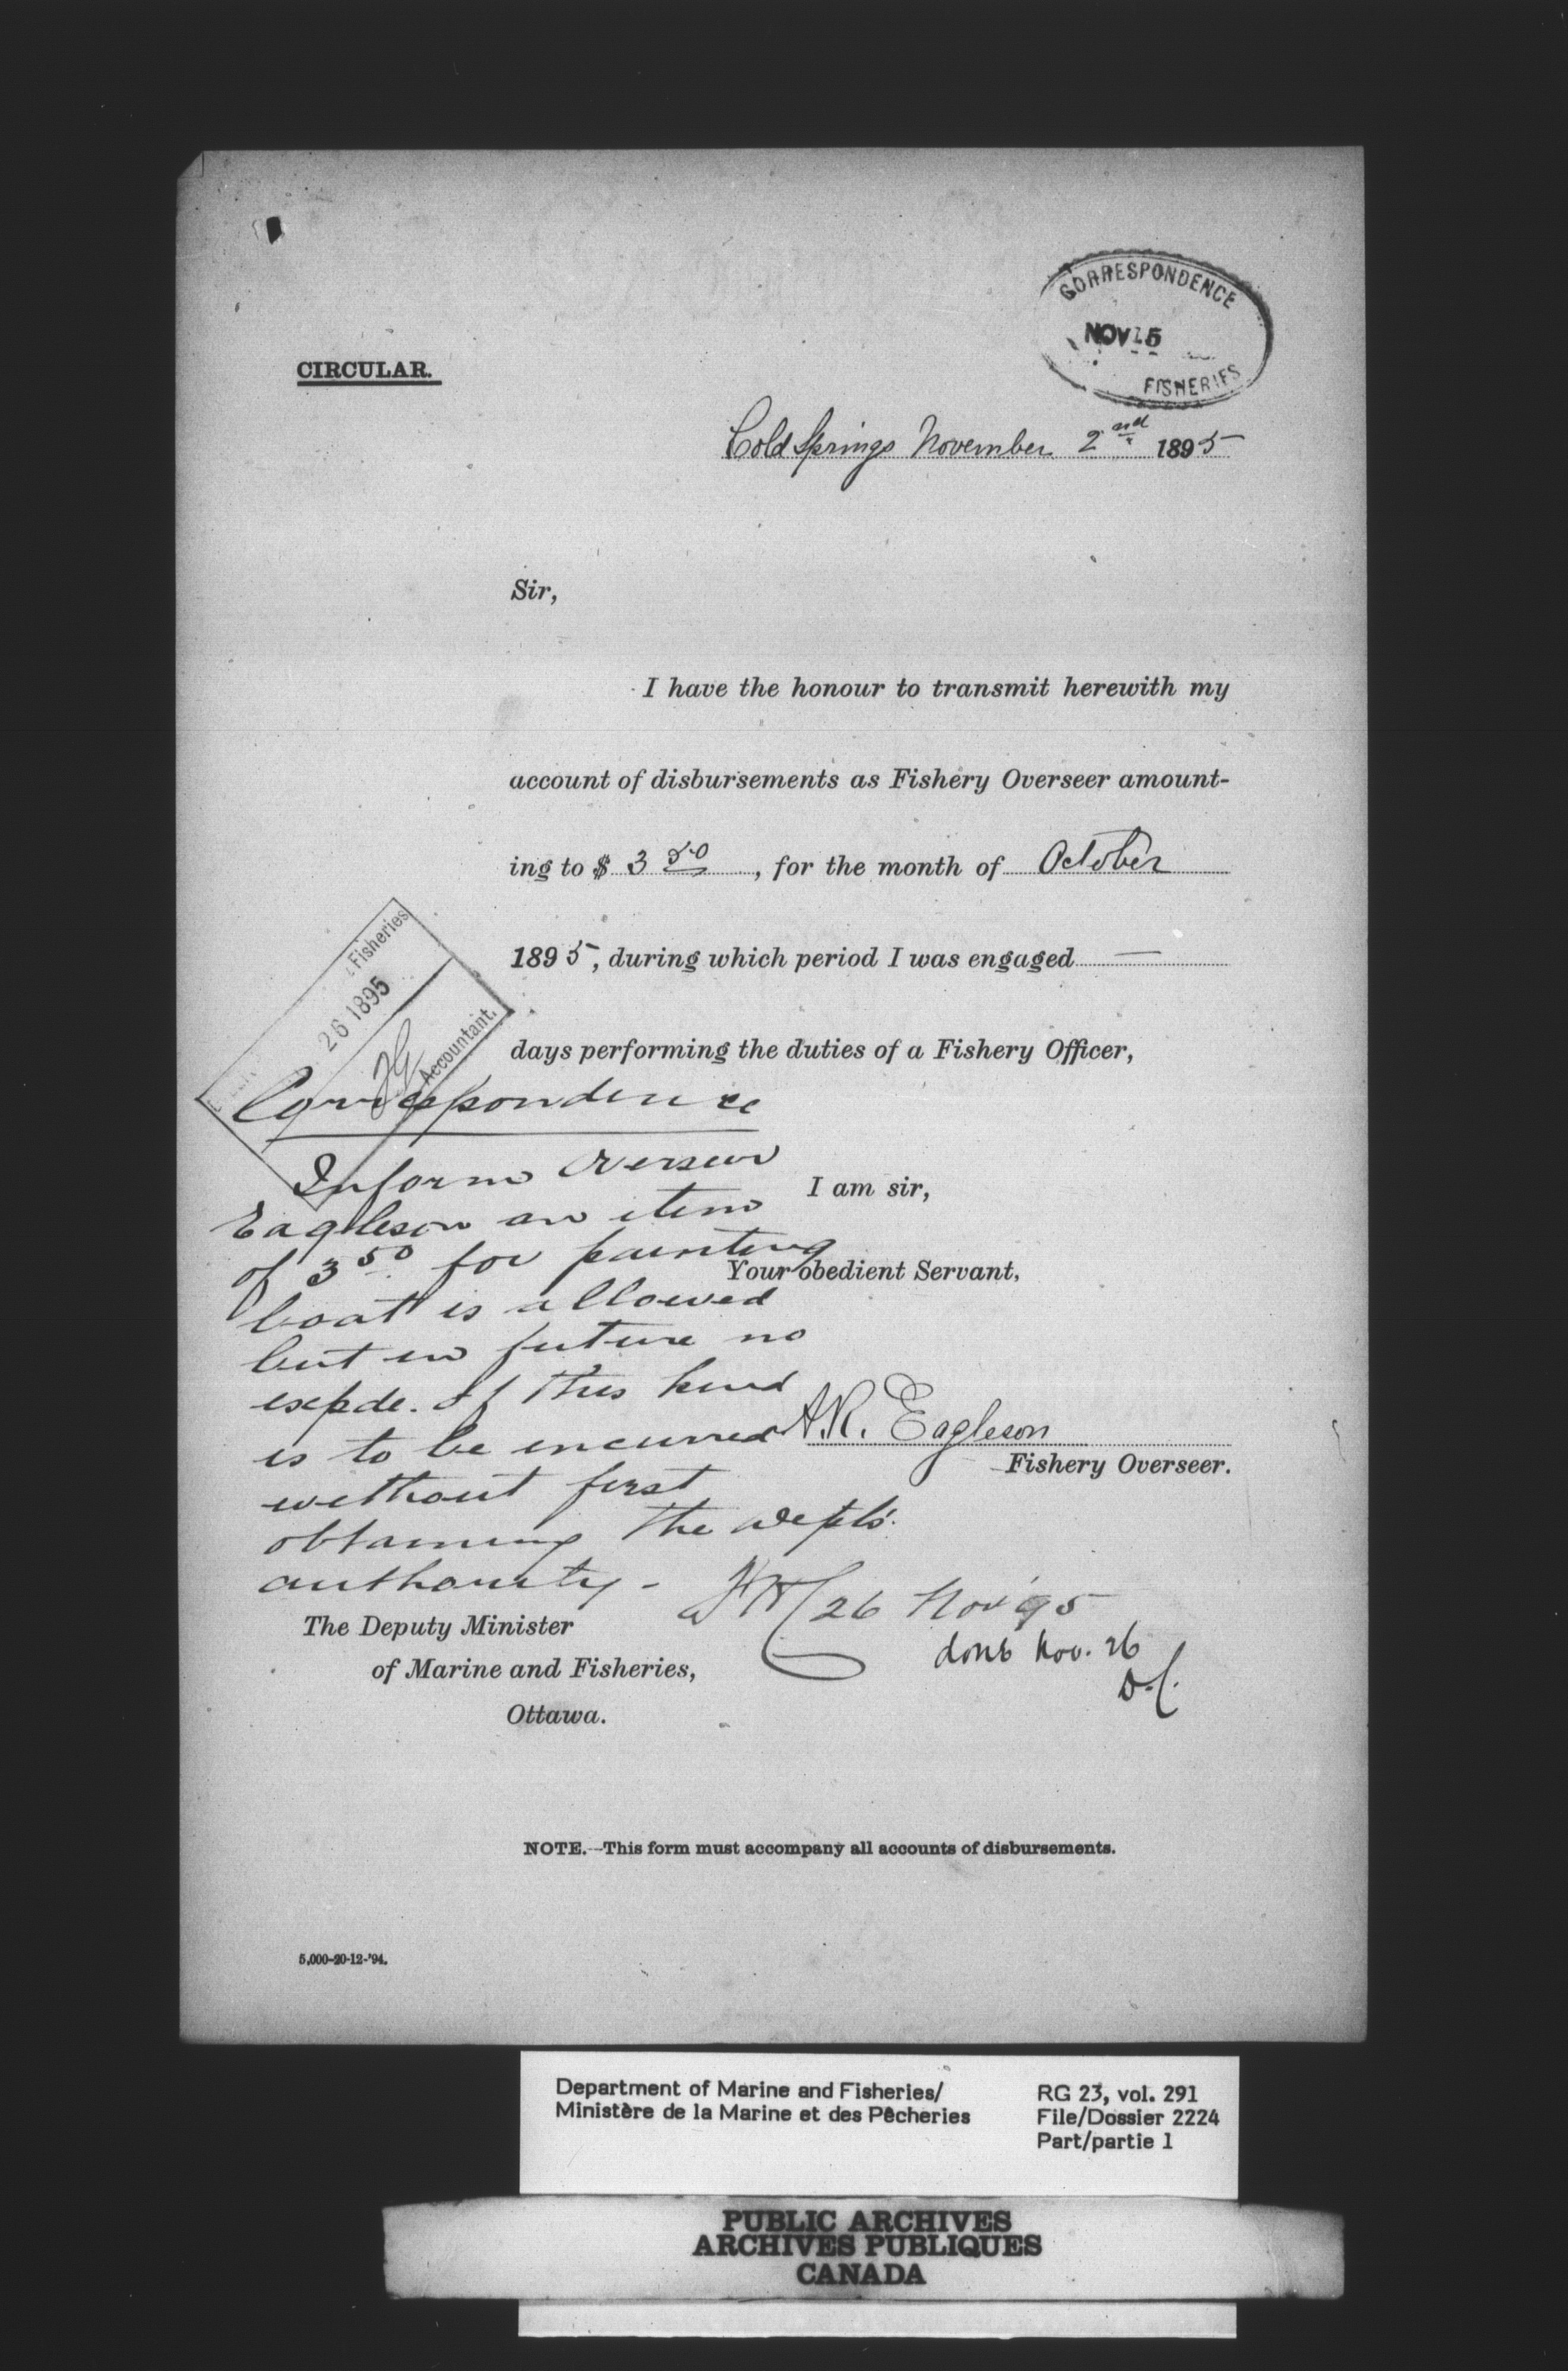 CORRESPONDENCE
NOV 15
FISHERIES
CIRCULAR.
Cold Springs November 2nd 1895
Sir,
I have the honour to transmit herewith my
account of disbursements as Fishery Overseer amount-
ing to $ 3 50, for the month of October
1895, during which period I was engaged —
days performing the duties of a Fishery Officer,
Fisheries
26 1895
Accountant.
Correspondence
Inform Overseer
Eagleson an item
of 3 50 for painting
boat is allowed
but in future no
expde. of this kind
is to be incurred
without first
obtaining the Depts.
authority -
26 Nov '95
done Nov. 26
I am sir,
Your obedient Servant,
A.R. Eagleson
Fishery Overseer.
The Deputy Minister
of Marine and Fisheries,
Ottawa.
NOTE.--This form must accompany all accounts of disbursements.
5,000-20-12-'94.
Department of Marine and Fisheries/
Ministère de la Marine et des Pêcheries
RG 23, vol. 291
File/Dossier 2224
Part/partie 1
PUBLIC ARCHIVES
ARCHIVES PUBLIQUES
CANADA